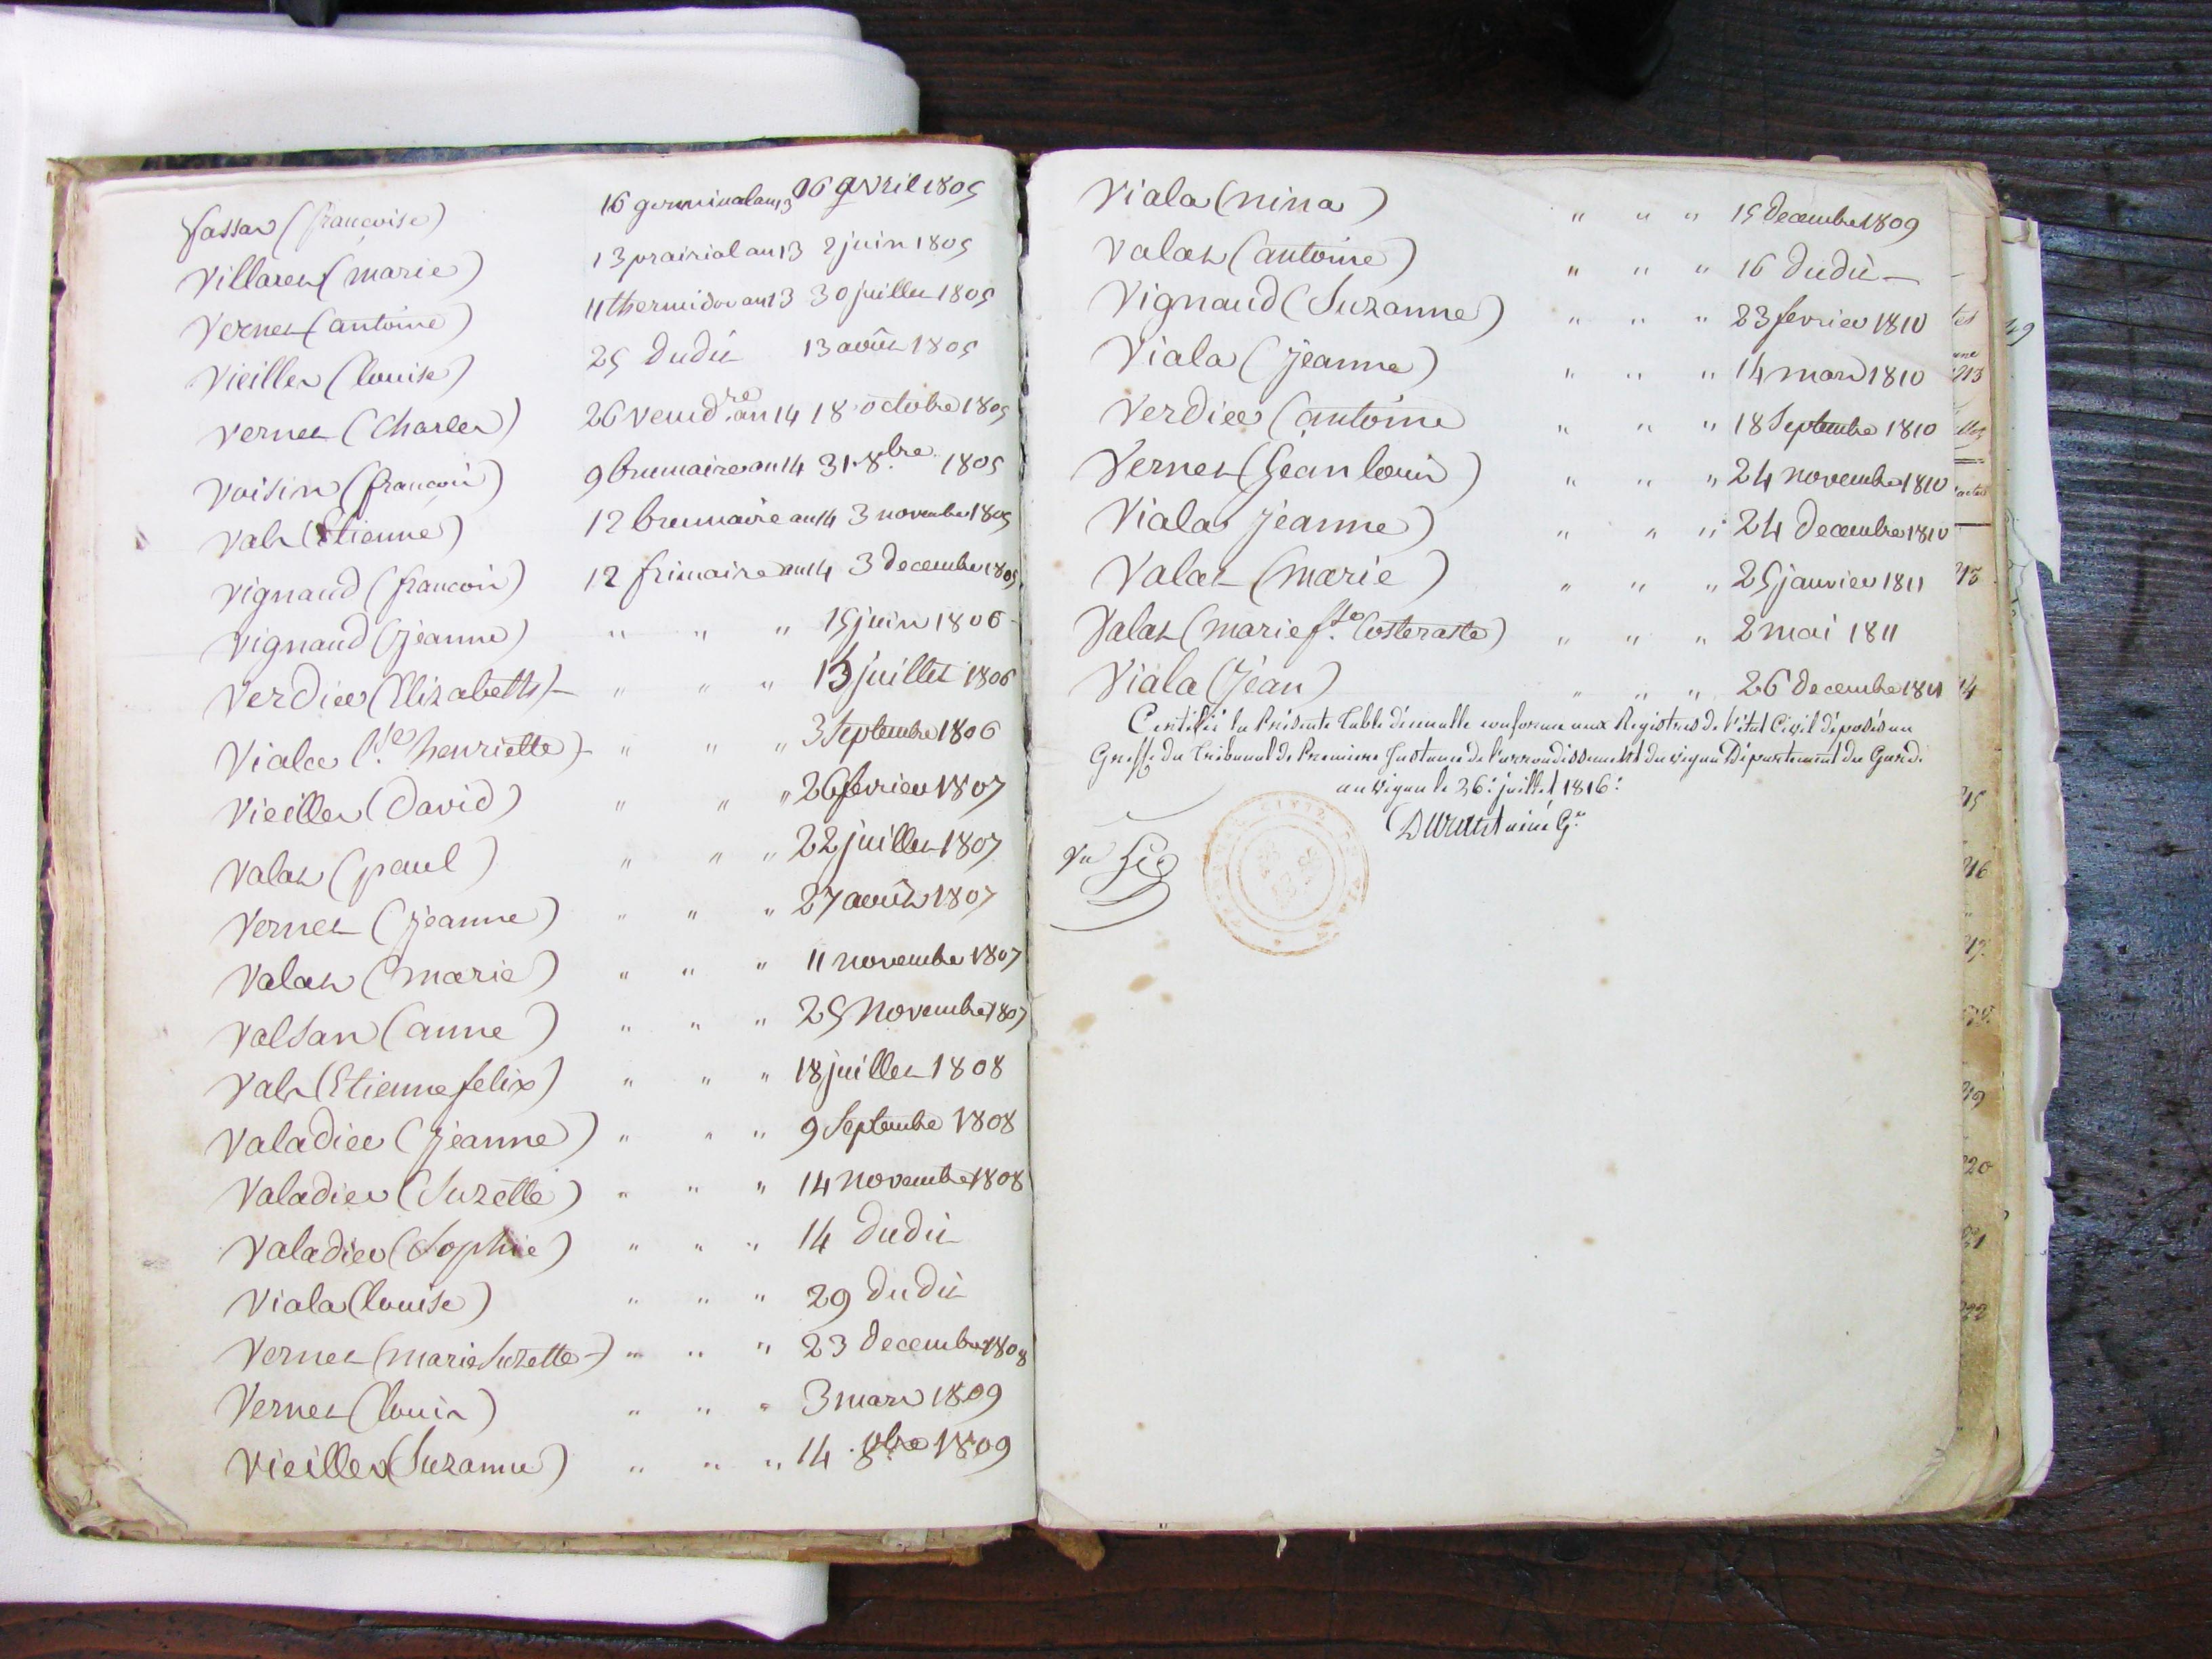 Vassas (francoise) 16 germinal an 13 06 avril 1805
Villaret (marie) 13 prairial an 13 2 juin 1805
Vernet (antoine) 11 thermidor an 13 30 juillet 1805
Vieilles (louise) 25 dudit 13 août 1805
Vernet (Charles) 26 vend.re an 14 18 octobre 1805
Voisin (francois) 9 brumaire an 14 31 8.bre 1805
Vals (Etienne) 12 brumaire an 14 3 novembre 1805
Vignaud (francois) 12 frimaire an 14 3 decembre 1805
Vignaud (jeanne) " " " 15 juin 1806
Verdier (Elizabeth) " " " 13 juillet 1806
Viala (henriette) " " " 3 Septembre 1806
Vieilles (David) " " " 26 fevrier 1807
Valat (paul) " " " 22 juillet 1807
Vernet (jeanne) " " " 27 août 1807
Valat (marie) " " " 11 novembre 1807
Valsan (anne) " " " 25 Novembre 1807
Vals (Etienne felix) " " " 18 juillet 1808
Valadier (jeanne) " " " 9 Septembre 1808
Valadier (Suzette) " " " 14 novembre 1808
Valadier (Sophie) " " " 14 dudit
Viala (louise) " " " 29 dudit
Vernet (marie Suzette) " " " 23 decembre 1808
Vernet (louis) " " " 3 mars 1809
Vieilles (Suzanne) " " " 14 8bre 1809
Viala (nina) " " " 15 decembre 1809
Valat (antoine) " " " 16 dudit
Vignaud (Suzanne) " " " 23 fevrier 1810
Viala (jeanne) " " " 14 mars 1810
Verdier (antoine " " " 18 Septembre 1810
Vernet (jean louis) " " " 24 novembre 1810
Viala jeanne) " " " 24 decembre 1810
Valat (marie) " " " 25 janvier 1811
Valat (marie Costeraste) " " " 2 mai 1811
Viala (jean) " " " 26 decembre 1811
Certifié la Présente table décennalle conforme aux Registres de l'état Civil déposés au
Greffe du tribunal de Premiere Instance de l'arrondissement du vigan Département du Gard.
au vigan le 26 juillet 1816
Vu